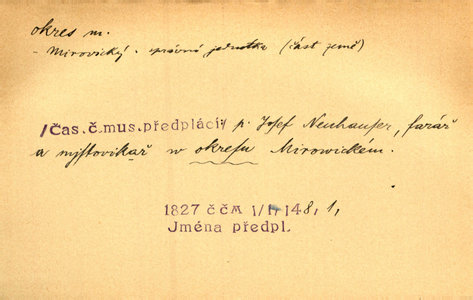 okres m.
- Mirovický - správní jednotka (část země)
/Čas.č.mus.předplácí/ p. Josef Neuhauser, farář
a mystovikař w okresu Mirowickém.
1827 ČČM I/1/148, 1,
Jména předpl.